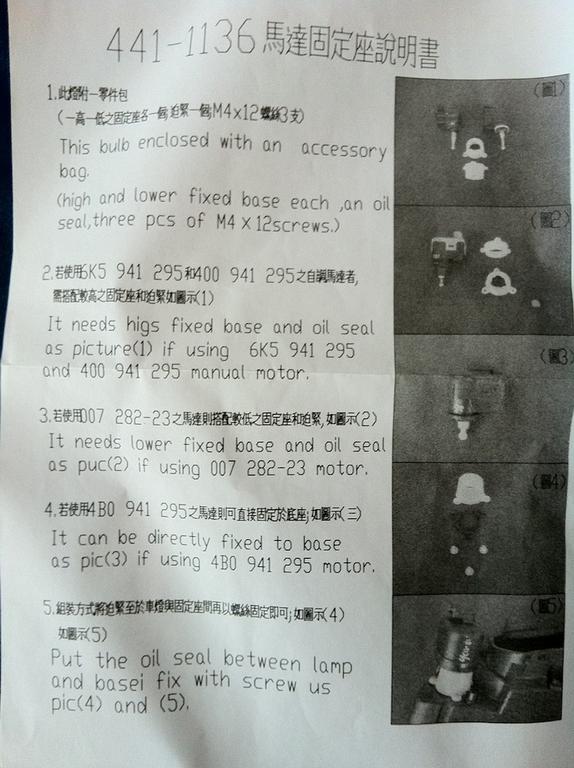 441-1136 馬達固定座說明書
1.此燈附一零件包
(一高一低之固定座各一個,迫緊一個,M4x12螺絲3支)
This bulb enclosed with an accessory
bag.
(high and lower fixed base each ,an oil
seal,three pcs of M4 X 12screws.)
2.若使用6K5 941 295和400 941 295之自調馬達者,
需搭配較高之固定座和迫緊如圖示(1)
It needs higs fixed base and oil seal
as picture(1) if using 6K5 941 295
and 400 941 295 manual motor.
3.若使用007 282-23之馬達則搭配較低之固定座和迫緊,如圖示(2)
It needs lower fixed base and oil seal
as puc(2) if using 007 282-23 motor.
4.若使用4B0 941 295之馬達則可直接固定於底座;如圖示(三)
It can be directly fixed to base
as pic(3) if using 4B0 941 295 motor.
5.組裝方式將迫緊至於車燈與固定座間再以螺絲固定即可;如圖示(4)
如圖示(5)
Put the oil seal between lamp
and basei fix with screw us
pic(4) and (5).
(圖1)
(圖2)
(圖3)
(圖4)
(圖5)